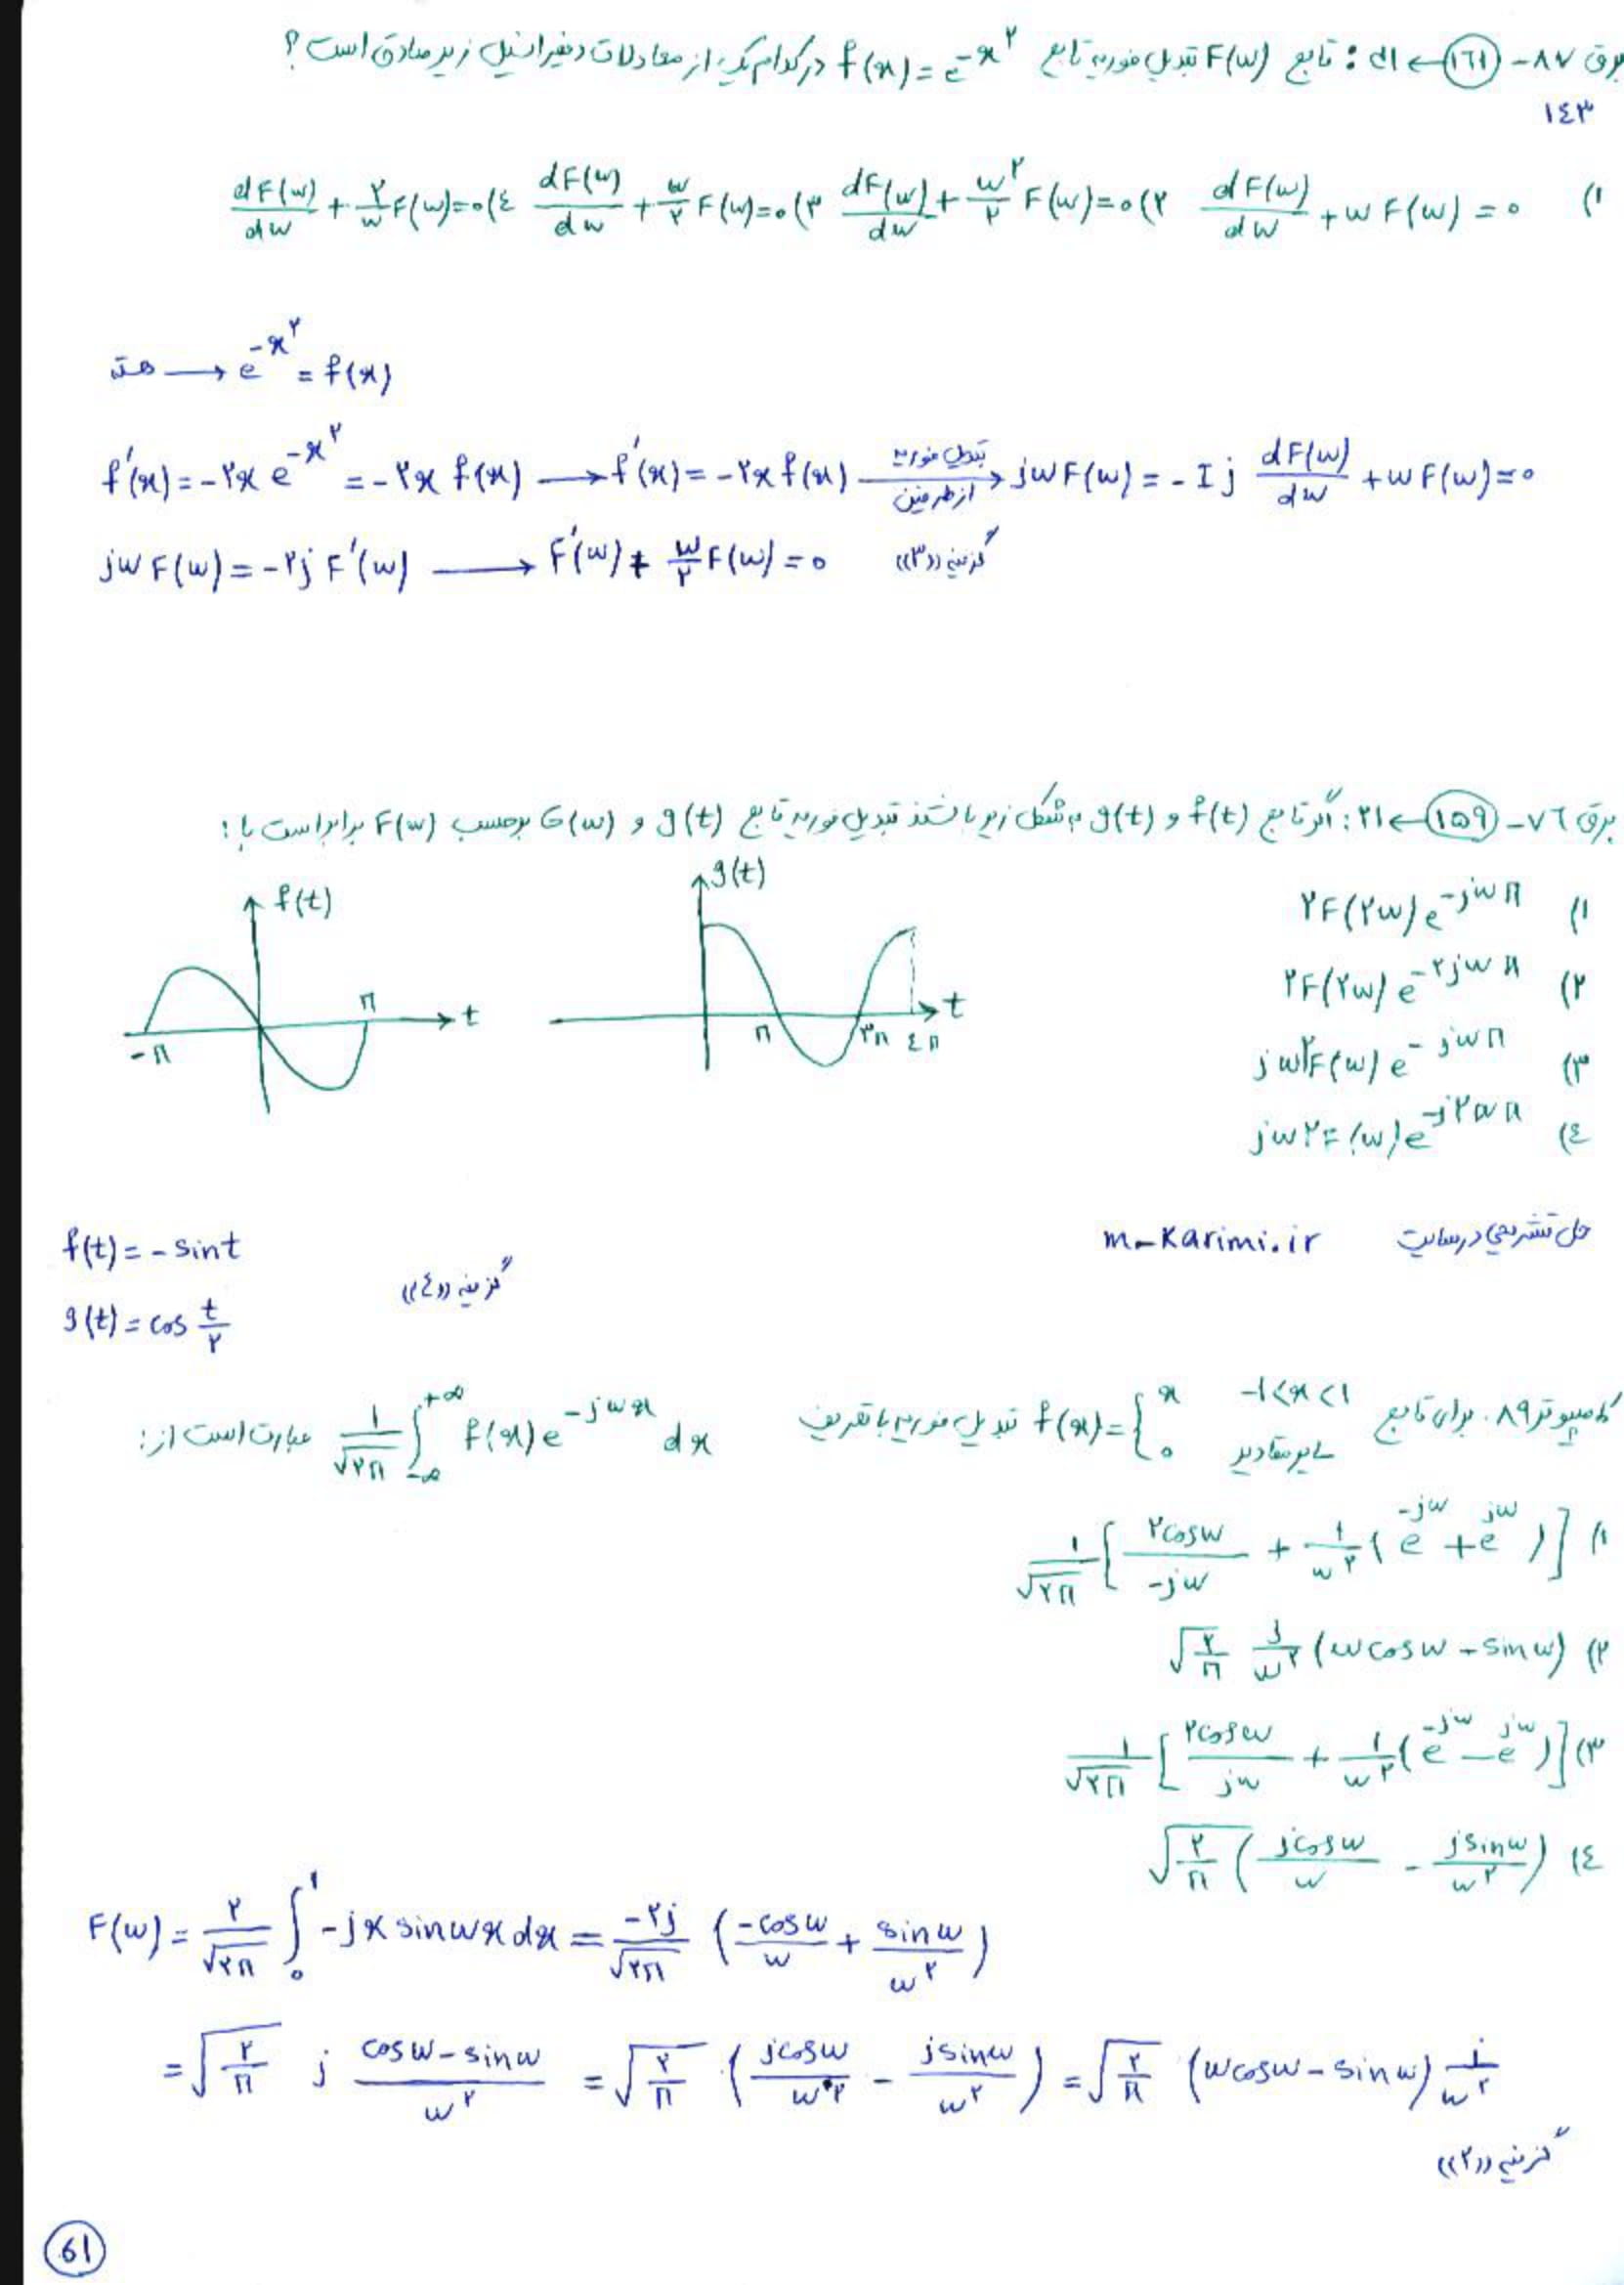 برق ۸۷- (۱۶۱) ← ۱۵: تابع F(w) تبدیل فوریه تابع f(x) = e^{-x^۲} در کدام یک از معادلات دیفرانسیل زیر صادق است؟
۱۴۳
۱) dF(w)/dw + wF(w) = ۰ ۲) dF(w)/dw + w^۲/۲ F(w) = ۰ ۳) dF(w)/dw + w/۲ F(w) = ۰ ۴) dF(w)/dw + ۲/w F(w) = ۰
→ e^{-x^۲} = f(x)
f'(x) = -۲x e^{-x^۲} = -۲x f(x) → f'(x) = -۲x f(x) تبدیل فوریه از طرفین → jwF(w) = -Ij dF(w)/dw + wF(w) = ۰
jwF(w) = -۲j F'(w) → F'(w) + w/۲ F(w) = ۰ گزینه «۳»
برق ۷۶- (۱۵۹) ← ۲۱: اگر تابع f(t) و g(t) به شکل زیر باشند تبدیل فوریه تابع g(t) و G(w) برحسب F(w) برابر است با:
f(t) g(t)
۱) ۲F(۲w)e^{-jwπ}
۲) ۲F(۲w)e^{-۲jwπ}
۳) jw۲F(w)e^{-jwπ}
-π π t π ۳π ۴π t
۴) jw۲F(w)e^{-j۲wπ}
حل تشریحی در سایت m-karimi.ir
f(t) = -sint
گزینه «۴»
g(t) = cos t/۲
کامپیوتر ۸۹. برای تابع f(x) = { x -۱<x<۱ ۰ سایر مقادیر تبدیل فوریه با تعریف ۱/√۲π ∫_{-∞}^{+∞} f(x)e^{-jwx}dx عبارت است از:
۱) ۱/√۲π [۲cosw/-jw + ۱/w^۲ (e^{-jw} + e^{jw})]
۲) √۲/π j/w^۲ (wcosw - sinw)
۳) ۱/√۲π [۲cosw/jw + ۱/w^۲ (e^{-jw} - e^{jw})]
۴) √۲/π (jcosw/w - jsinw/w^۲)
F(w) = ۲/√۲π ∫_۰^۱ -jx sinwx dx = -۲j/√۲π (-cosw/w + sinw/w^۲)
= √۲/π j cosw - sinw/w^۲ = √۲/π (jcosw/w^۲ - jsinw/w^۲) = √۲/π (wcosw - sinw) j/w^۲
گزینه «۲»
61